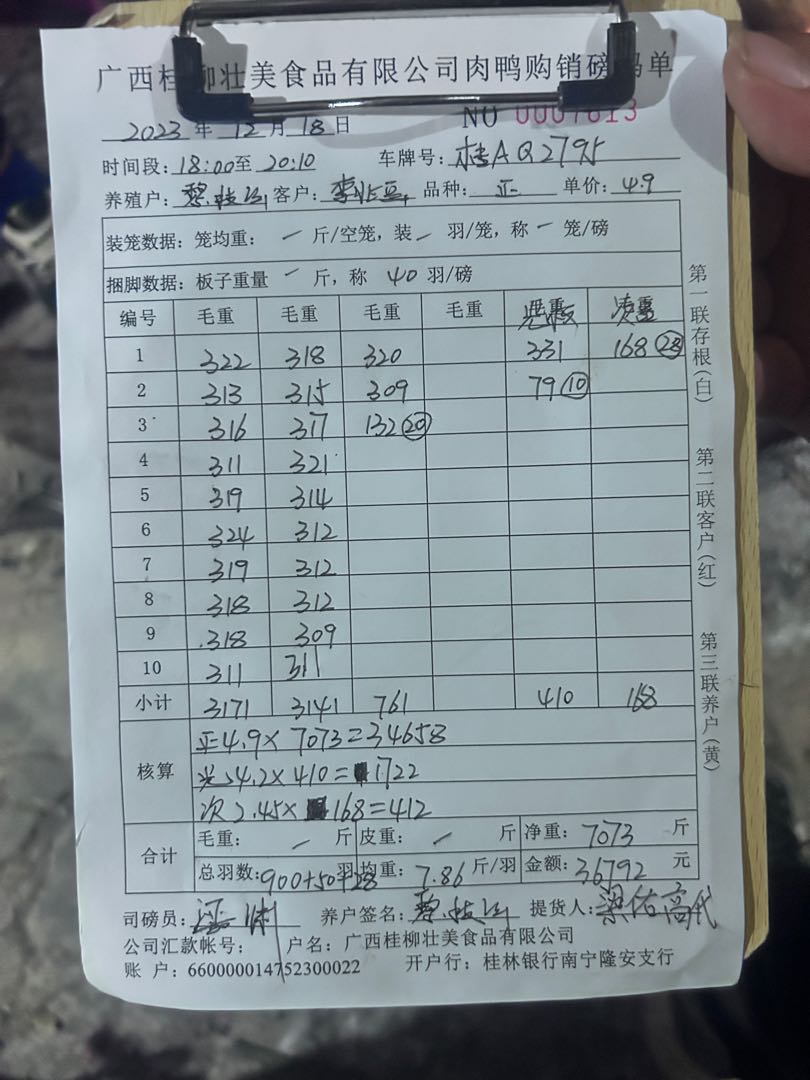 广西桂柳壮美食品有限公司肉鸭购销磅码单
NO 0007613
2023 年 12 月 18 日
时间段：18:00 至 20:10 车牌号：桂AQ2795
养殖户：黎枝 客户：李 品种：正 单价：4.9
装笼数据：笼均重： 一 斤/空笼，装 一 羽/笼，称 一 笼/磅
捆脚数据：板子重量 一 斤，称 40 羽/磅
编号 毛重 毛重 毛重 毛重
1 322 318 320 331 168 28
2 313 315 309 79 10
3 316 317 132 20
4 311 321
5 319 314
6 324 312
7 319 312
8 318 312
9 318 309
10 311 311
小计 3171 3141 761 410 168
核算
正4.9×7073=34658
光4.2×410=1722
次2.45×168=412
合计
毛重： 一 斤 皮重： 一 斤 净重：7073 斤
总羽数：900+50+28 羽 均重：7.86 斤/羽 金额：36792 元
司磅员： 养户签名：黎枝 提货人：梁佑高代
公司汇款帐号： 户名：广西桂柳壮美食品有限公司
账 户：660000014752300022 开户行：桂林银行南宁隆安支行
第一联存根(白)
第二联客户(红)
第三联养户(黄)